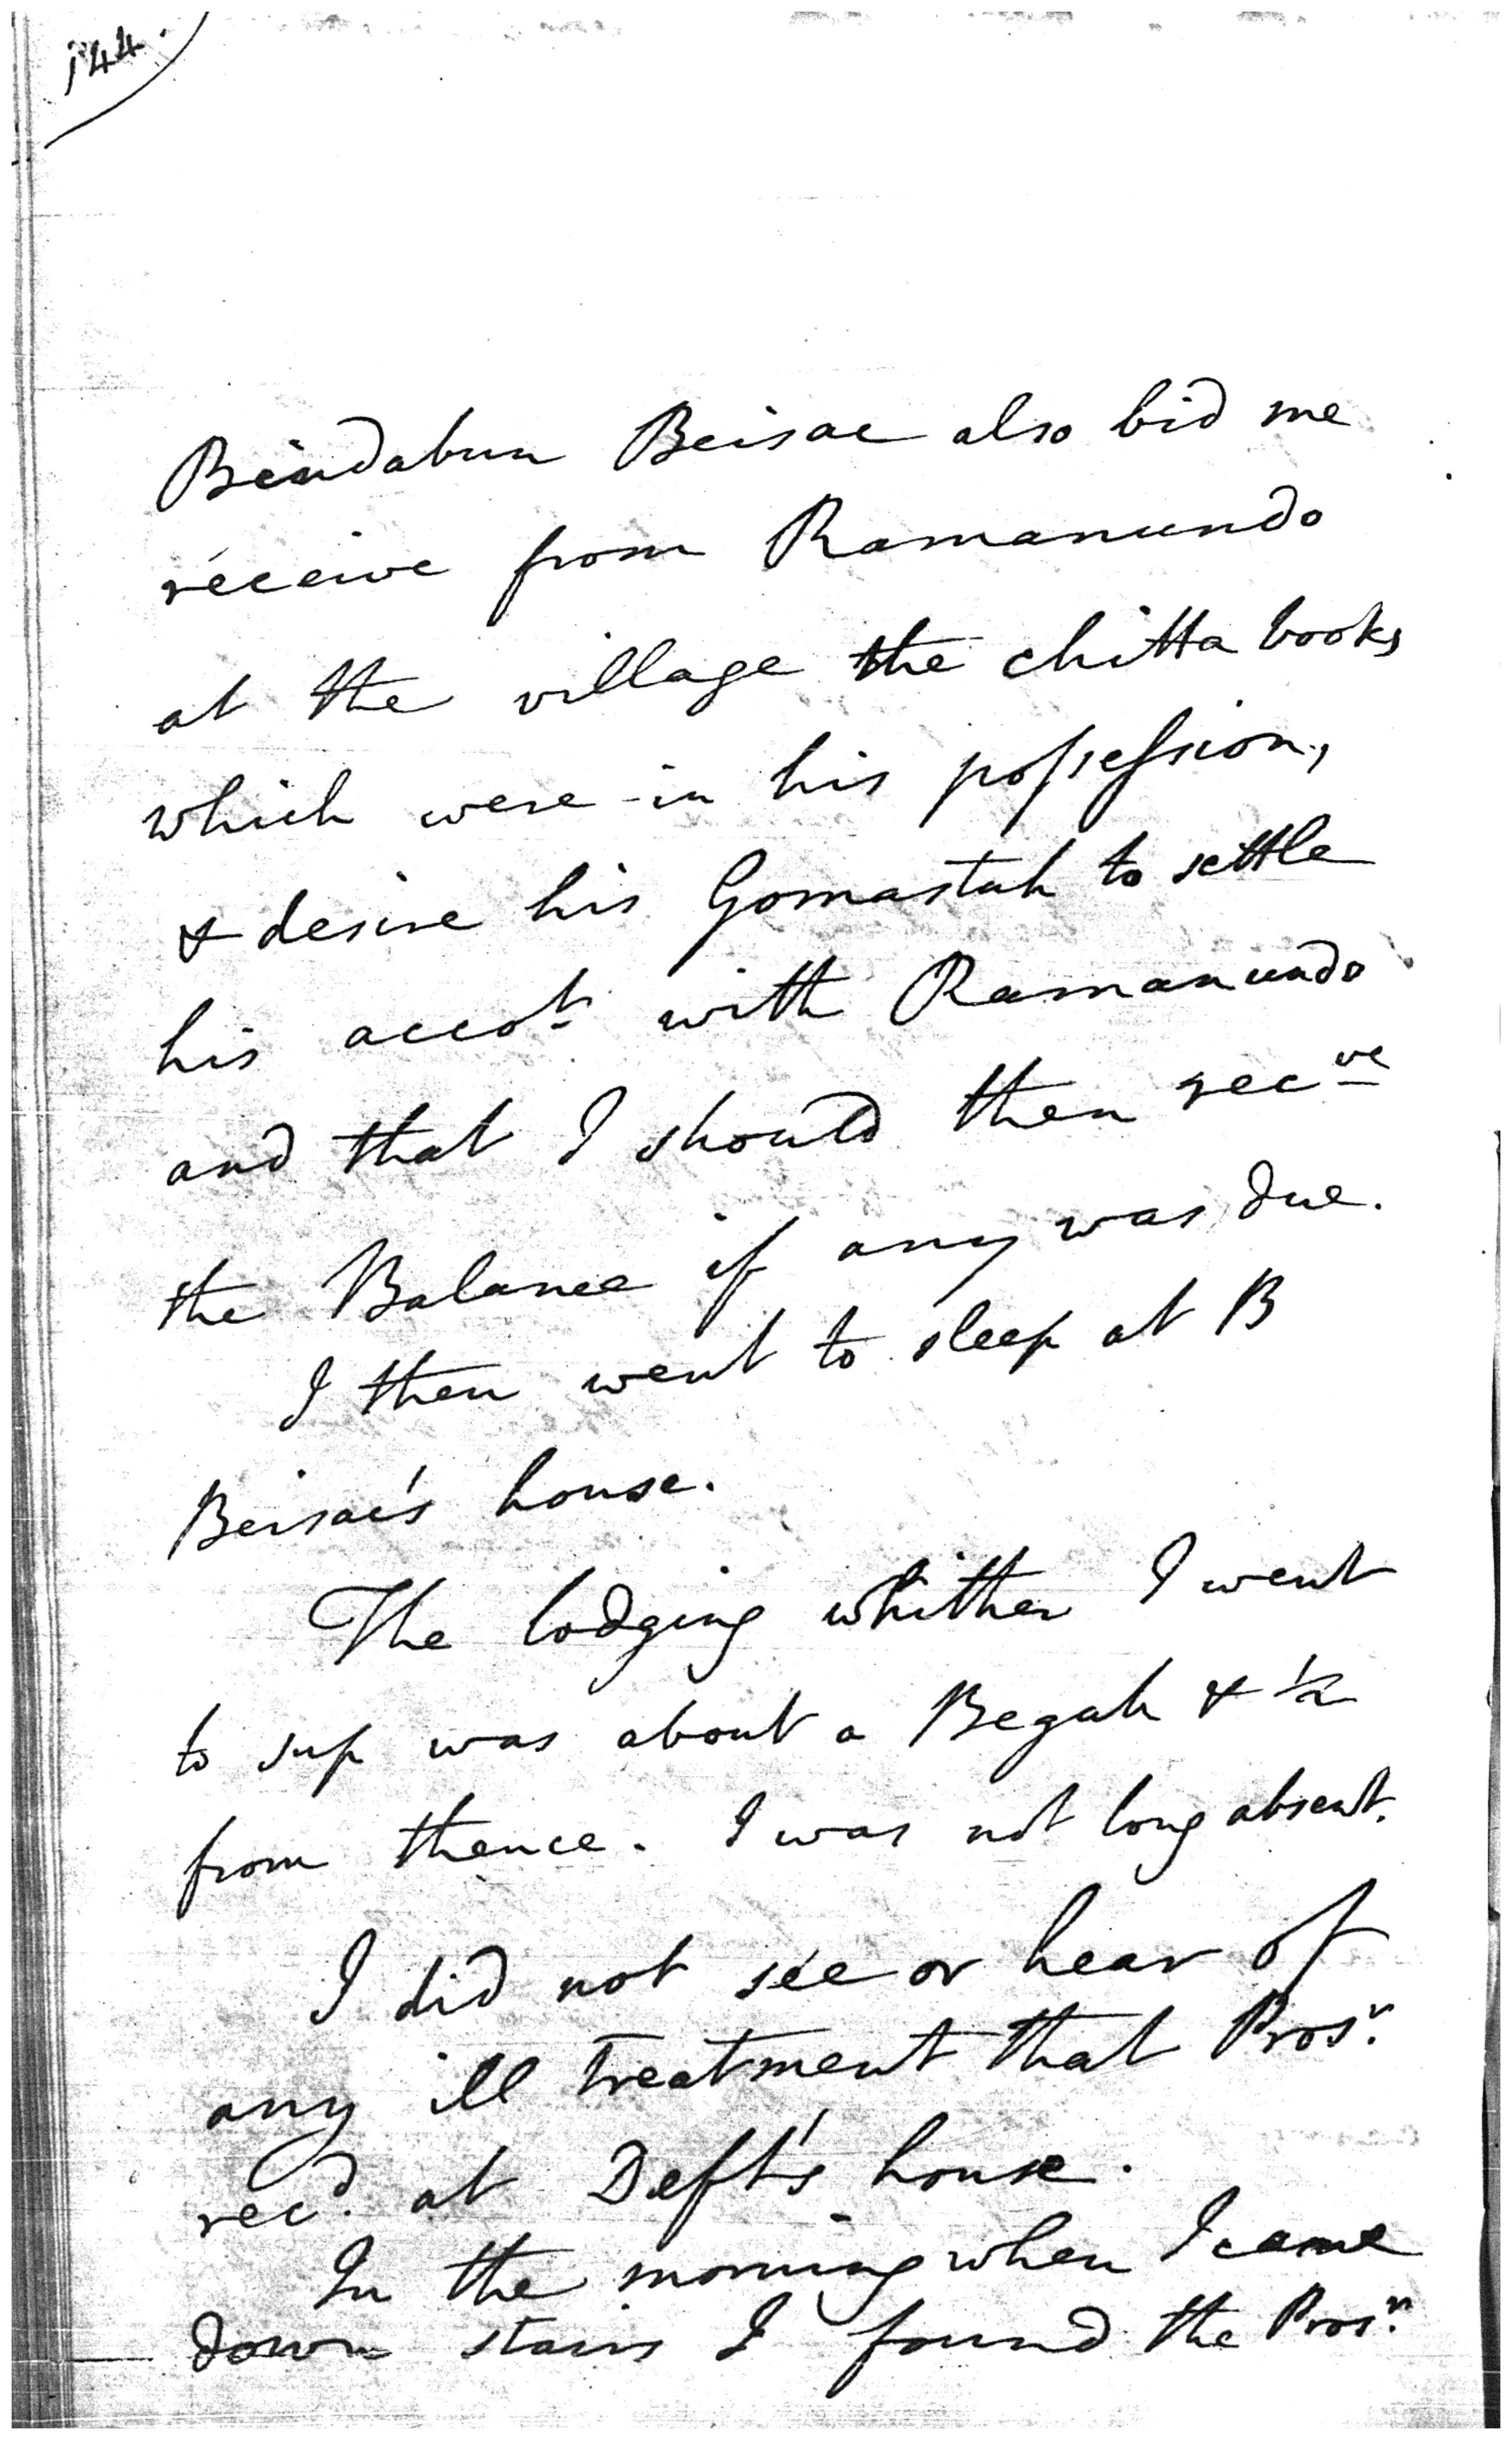 144.
Bindabun Beisac also bid me
receive from Ramanundo
at the village the chitta books
which were in his possession,
& desire his Gomastah to settle
his accots with Ramanundo
and that I should then recve
the Balance if any was due.
I then went to sleep at B
Beisac's house.
The lodging whither I went
to sup was about a Begah & ½
from thence. I was not long absent.
I did not see or hear of
any ill treatment that Prosr.
recd. at Deft's house.
In the morning when I came
down stairs I found the Prosr.